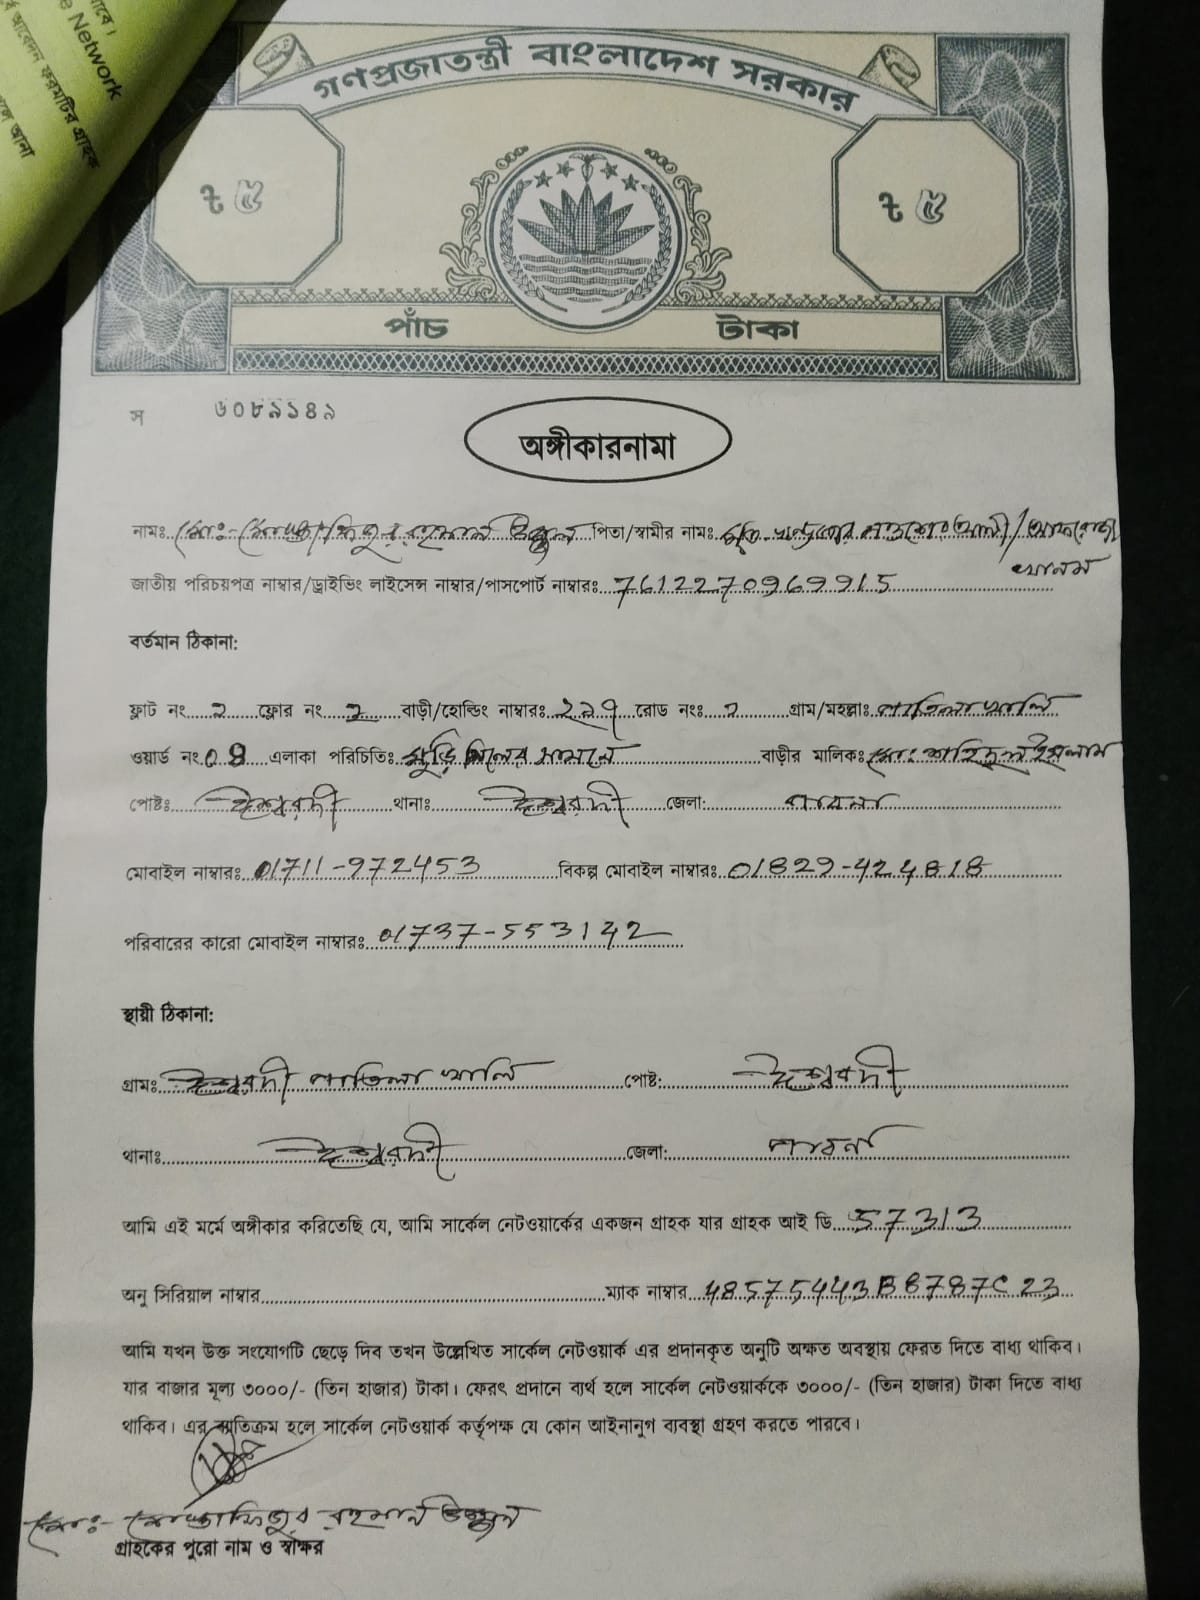 যাবে।
e Network
র্ব আবেদন ফরমটির গ্রাহক
লে আনা
গণপ্রজাতন্ত্রী বাংলাদেশ সরকার
৳ ৫ ৳ ৫
পাঁচ টাকা
স ৬০৮৯১৪৯
অঙ্গীকারনামা
নামঃ মোঃ- মোস্তাফিজুর রহমান উজ্জ্বল পিতা/স্বামীর নামঃ মৃত খন্দকার নওশের আলী/আফরোজা
খানম
জাতীয় পরিচয়পত্র নাম্বার/ড্রাইভিং লাইসেন্স নাম্বার/পাসপোর্ট নাম্বারঃ 7612270969915
বর্তমান ঠিকানা:
ফ্লাট নং ২ ফ্লোর নং ২ বাড়ী/হোল্ডিং নাম্বারঃ ২২৭ রোড নংঃ গ্রাম/মহল্লাঃ পাতিলাখালি
ওয়ার্ড নং 08 এলাকা পরিচিতিঃ মুড়ি মিলের সামনে বাড়ীর মালিকঃ মোঃ শহিদুল ইসলাম
পোষ্টঃ ঈশ্বরদী থানাঃ ঈশ্বরদী জেলা: পাবনা
মোবাইল নাম্বারঃ 01711-972453 বিকল্প মোবাইল নাম্বারঃ 01829-424818
পরিবারের কারো মোবাইল নাম্বারঃ 01737-553142
স্থায়ী ঠিকানা:
গ্রামঃ ঈশ্বরদী পাতিলা খালি পোষ্ট: ঈশ্বরদী
থানাঃ ঈশ্বরদী জেলা: পাবনা
আমি এই মর্মে অঙ্গীকার করিতেছি যে, আমি সার্কেল নেটওয়ার্কের একজন গ্রাহক যার গ্রাহক আই ডি 57313
অনু সিরিয়াল নাম্বার ম্যাক নাম্বার 48575443B8787C23
আমি যখন উক্ত সংযোগটি ছেড়ে দিব তখন উল্লেখিত সার্কেল নেটওয়ার্ক এর প্রদানকৃত অনুটি অক্ষত অবস্থায় ফেরত দিতে বাধ্য থাকিব।
যার বাজার মূল্য ৩০০০/- (তিন হাজার) টাকা। ফেরৎ প্রদানে ব্যর্থ হলে সার্কেল নেটওয়ার্ককে ৩০০০/- (তিন হাজার) টাকা দিতে বাধ্য
থাকিব। এর ব্যতিক্রম হলে সার্কেল নেটওয়ার্ক কর্তৃপক্ষ যে কোন আইনানুগ ব্যবস্থা গ্রহণ করতে পারবে।
মোঃ- মোস্তাফিজুর রহমান উজ্জ্বল
গ্রাহকের পুরো নাম ও স্বাক্ষর